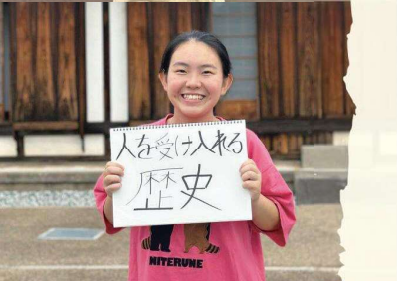 人を受け入れる
歴史
NITERUNE